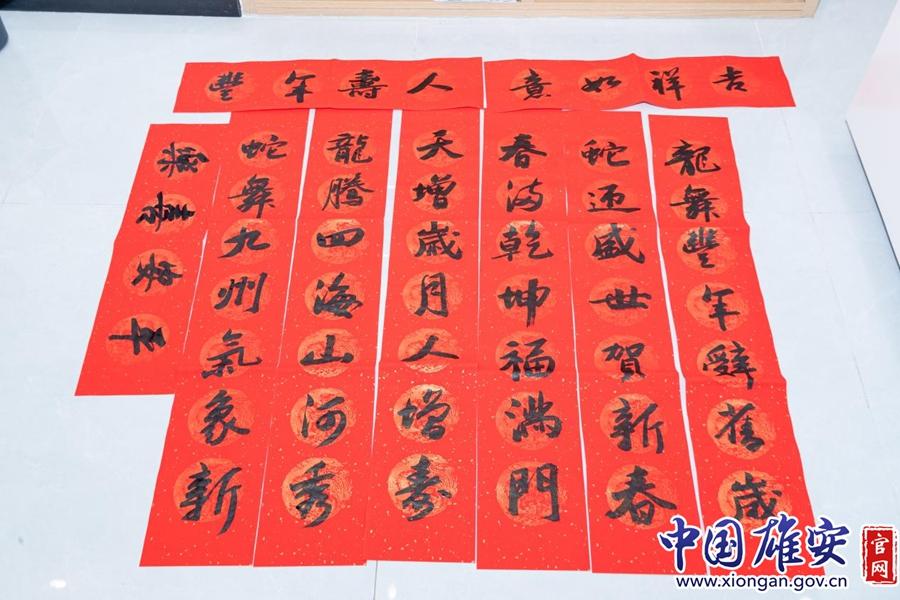 吉祥如意
人壽年豐
龍舞豐年辭舊歲
蛇迎盛世賀新春
春滿乾坤福滿門
天增歲月人增寿
龍騰四海山河秀
蛇舞九州氣象新
中国雄安 官网
www.xiongan.gov.cn